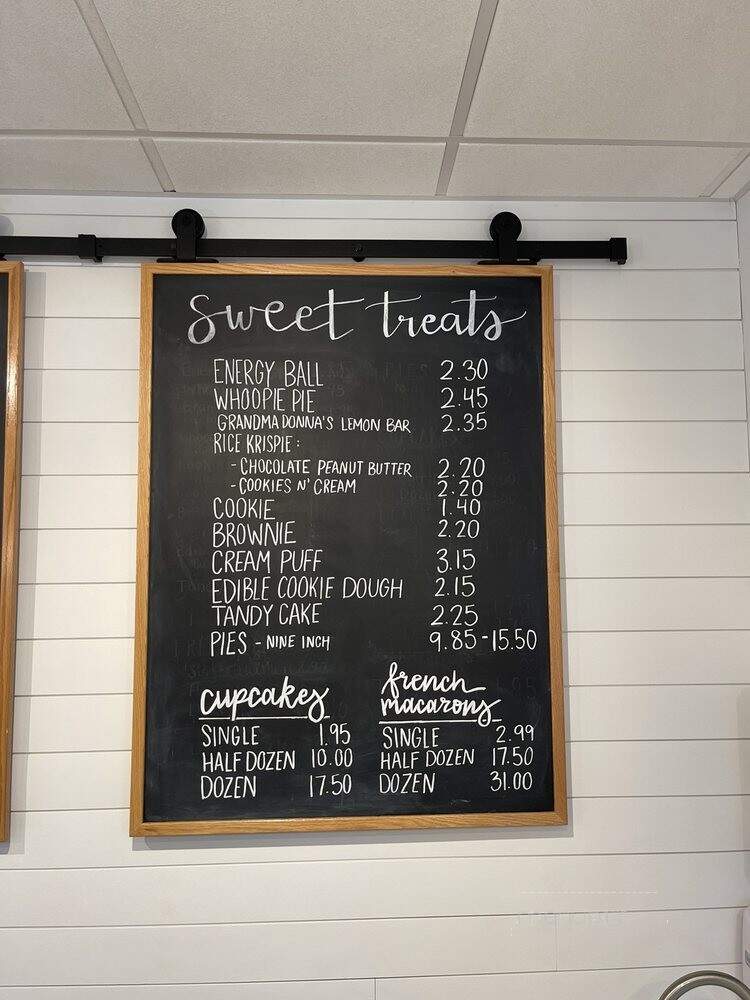 sweet treats
ENERGY BALL 2.30
WHOOPIE PIE 2.45
GRANDMA DONNA'S LEMON BAR 2.35
RICE KRISPIE:
- CHOCOLATE PEANUT BUTTER 2.20
- COOKIES N' CREAM 2.20
COOKIE 1.40
BROWNIE 2.20
CREAM PUFF 3.15
EDIBLE COOKIE DOUGH 2.15
TANDY CAKE 2.25
PIES - NINE INCH 9.85-15.50
cupcakes
SINGLE 1.95
HALF DOZEN 10.00
DOZEN 17.50
french
macarons
SINGLE 2.99
HALF DOZEN 17.50
DOZEN 31.00